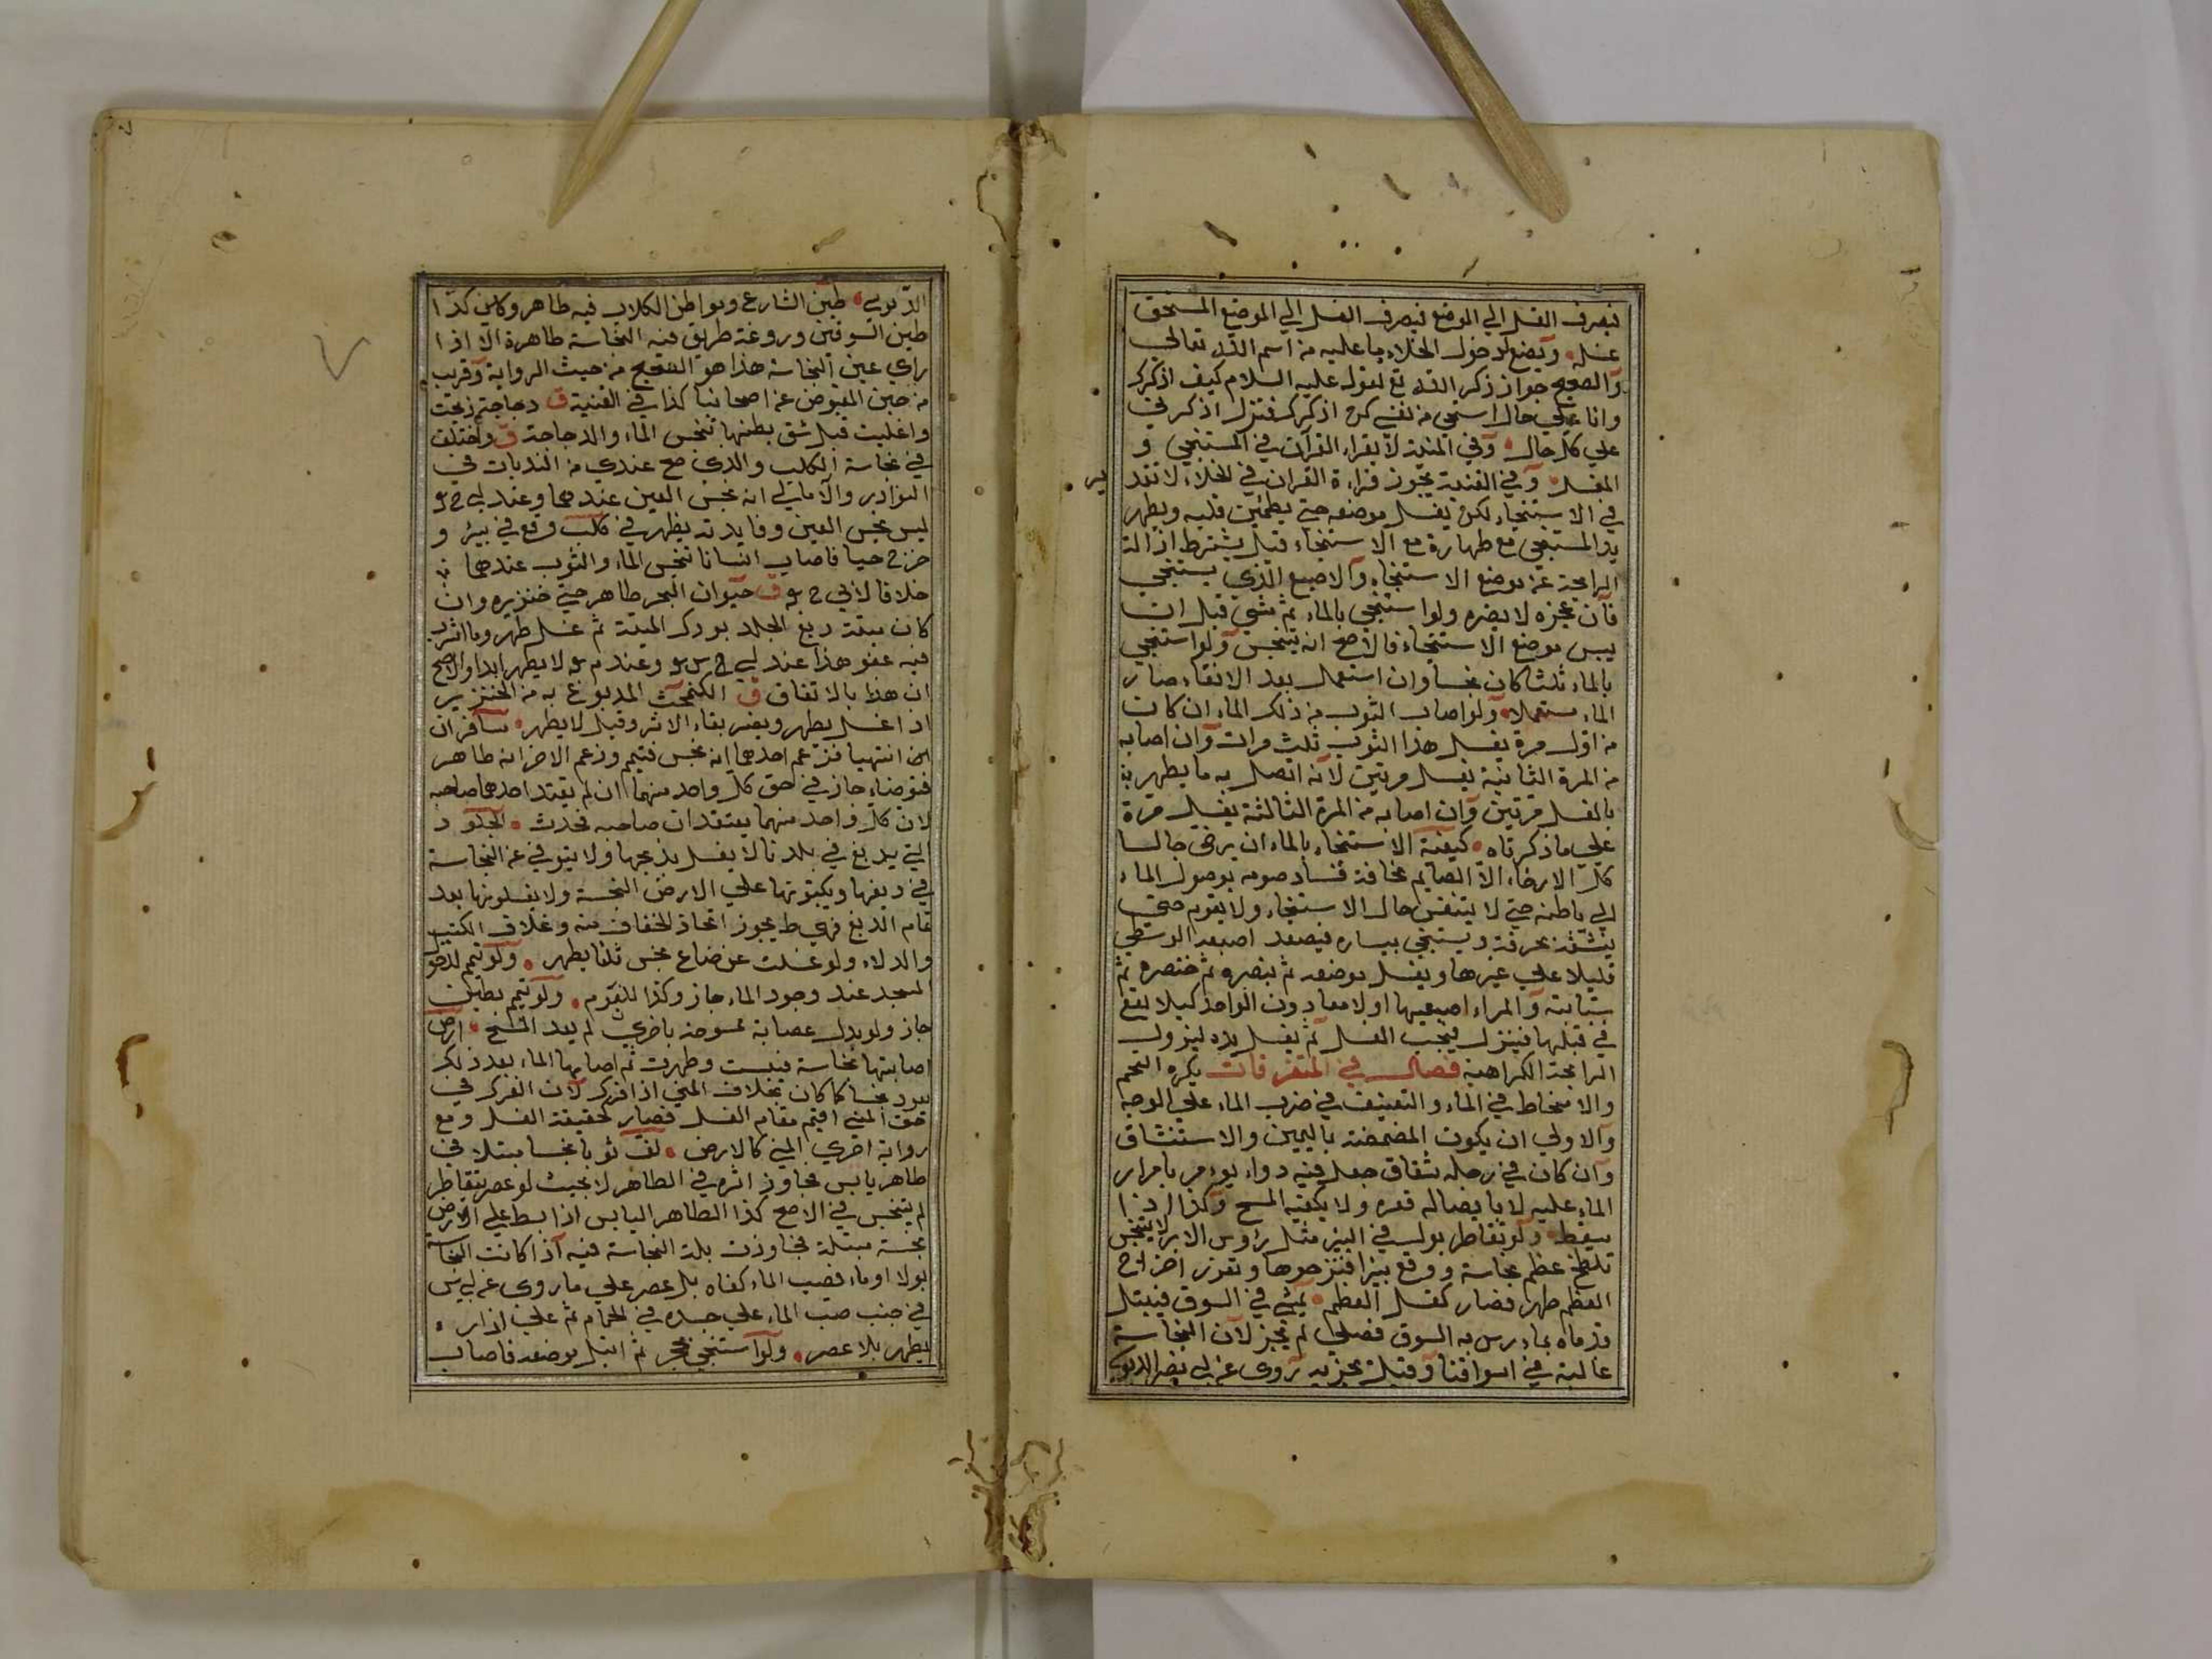 فيصرف الغسل الي الموضع فيصرف الغسل الي الموضع المستحق
غسله ويضع لدخول الخلاء ما عليه من اسم الله تعالي
والصحيح جواز ذكر الله تع لقوله عليه السلام كيف اذكرك
وانا علي حال استحي من نفسي كرم اذكرك فنزل اذكرني
علي كل حال وفي المنية لا يقراء القرآن في المستنجي و
المغسل وفي القنية يجوز قراءة القران في الخلاء لا تقد
ير
في الاستنجاء لكن يغسل موضعه حتي يطمئن قلبه ويطهر
يد المستنجي مع طهارة مع الاستنجاء قيل يشترط ازالة
الرايحة عن موضع الاستنجاء والاصبع الذي يستنجي
فان عجزه لا يضره ولو استنجي بالماء ثم مشي قبل ان
يبس موضع الاستنجاء فالاصح انه يتنجس ولو استنجي
بالماء ثلثا كان نجسا وان استعمل بعد الانقاء صار
الماء مستعملا ولو اصاب الثوب من ذلك الماء ان كانت
من اول مرة يغسل هذا الثوب ثلث مرات وان اصابه
من المرة الثانية يغسل مرتين لانه اتصل به ما يطهر به
بالغسل مرتين وان اصابه من المرة الثالثة يغسل مرة
علي ما ذكرناه كيفية الاستنجاء بالماء ان يرخي جالسا
كل الارخاء الا الصايم مخافة فساد صومه بوصول الماء
الي باطنه حتي لا يتنفس حال الاستنجاء ولا يقوم حتي
ينشفه بخرقة ويستنجي بيساره فيصعد اصبعه الوسطي
قليلا علي غيرها ويغسل موضعه ثم بنصره ثم خنصره ثم
سبابته والمراء اصبعيها اولا معا دون الواحد كيلا يقع
في قبلها فينزل فيجب الغسل ثم يغسل يده ليزول
الرايحة الكراهية فصل في المتفرقات يكره التنخم
والامتخاط في الماء والتعنيف في ضرب الماء علي الوجه
والاولي ان يكون المضمضة باليمين والاستنشاق
وان كان في رجله شقاق جعل فيه دواء يؤمر بامرار
الماء عليه لا بايصاله قعره ولا يكفيه المسح وكذا اذا
سقط ولو تقاطر بوله في البئر مثل رؤس الابر لا يتنجس
تلطخ عظم نجاسة ووقع بيرا فنزحوها وتعزر اخراج
العظم طهر فصار كغسل العظم يمشي في السوق فيبتل
قدماه بماء رس به السوق فصلي لم يجز لان النجاسة
غالبة في اسواقنا وقيل يجزيه روى عن ابي نصر الدبوسي
الدبوسي طين الشارع ومواطن الكلاب فيه طاهر وكاين كذا
طين السوقين وروغة طريق فيه النجاسة طاهرة الا اذا
راي عين النجاسة هذا هو الصحيح من حيث الرواية وقريب
من حيث المنصوص عن اصحابنا كذا في القنية ق دجاجة ذبحت
واغليت قبل شق بطنها تنجس الماء والدجاجة ق واختلف
في نجاسة الكلب والذي صح عندي من الروايات في
النوادر والامالي انه نجس العين عندهما وعند ابي ح
ليس نجس العين وفايدته يظهر في كلب وقع في بير و
خرج حيا فاصاب انسانا تنجس الماء والثوب عندهما
خلافا لابي ح ق حيوان البحر طاهر حتي خنزيره وان
كان ميتة دبغ الجلد بودك الميتة ثم غسل طهر وما اشرب
فيه عفو هذا عند ابي ح س وعند م لا يطهر ابدا والاصح
ان هذا بالاتفاق ق الكيمخت المدبوغ به من الخنزير
اذا غسل يطهر ويضر بقاء الاثر وقيل لا يطهر مسافران
انتهيا فزعم احدهما انه نجس فتيمم وزعم الاخر انه طاهر
فتوضاء جاز في حق كل واحد منهما ان لم يقتد احدهما صاحبه
لان كل واحد منهما يعتقد ان صاحبه محدث الجلود
التي يدبغ في بلدنا لا يغسل مذبحها ولا يتوقي عن النجاسة
في دبغها ويكبونها علي الارض النجسة ولا يغسلونها بعد
تمام الدبغ فهي ط يجوز اتخاذ الخفاف منه وغلاف الكتب
والدلاء ولو غسلت عن ضاع نجس ثلثا يطهر ولو تيمم لدخول
المسجد عند وجود الماء جاز وكذا للنوم ولو تيمم بطين
جاز ولو بدل عصابة ممسوحة باخري لم يعد المسح ارض
اصابتها نجاسة فيبست وطهرت ثم اصابها الماء بعد ذلك
يعود نجسا كما كان بخلاف المني اذا فرك لان الفرك في
حق المني اقيم مقام الغسل فصار كحقيقة الغسل ومع
رواية اخري المني كالارض لف ثوبا نجسا مبتلا في
طاهر يابس تجاوز اثره في الطاهر لا بحيث لو عصر يتقاطر
لم يتنجس في الاصح كذا الطاهر اليابس اذا بسط علي الارض
نجسة مبتلة فجاوزت بلة النجاسة فيه اذا كانت النجاسة
بولا او ماء فصب الماء كفاه بلا عصر علي ما روى عن ابي س
في جنب صب الماء علي جسده في الحمام ثم علي ازار
يطهر بلا عصر ولو استنجي بحجر ثم ابتل موضعه فاصاب